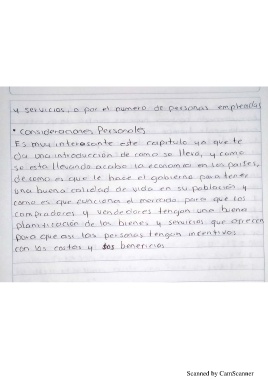 y servicios, o por el numero de personas empleadas
• Consideraciones Personales
Es muy interesante este capitulo ya que te
da una introducción de como se lleva, y como
se esta llevando acabo la economia en los paises,
de como es que le hace el gobierno para tener
una buena calidad de vida en su población y
como es que funciona el mercado para que los
compradores y vendedores tengan una buena
planificación de los bienes y servicios que ofrecen
para que asi las personas tengan incentivos
con los costos y sus beneficios
Scanned by CamScanner